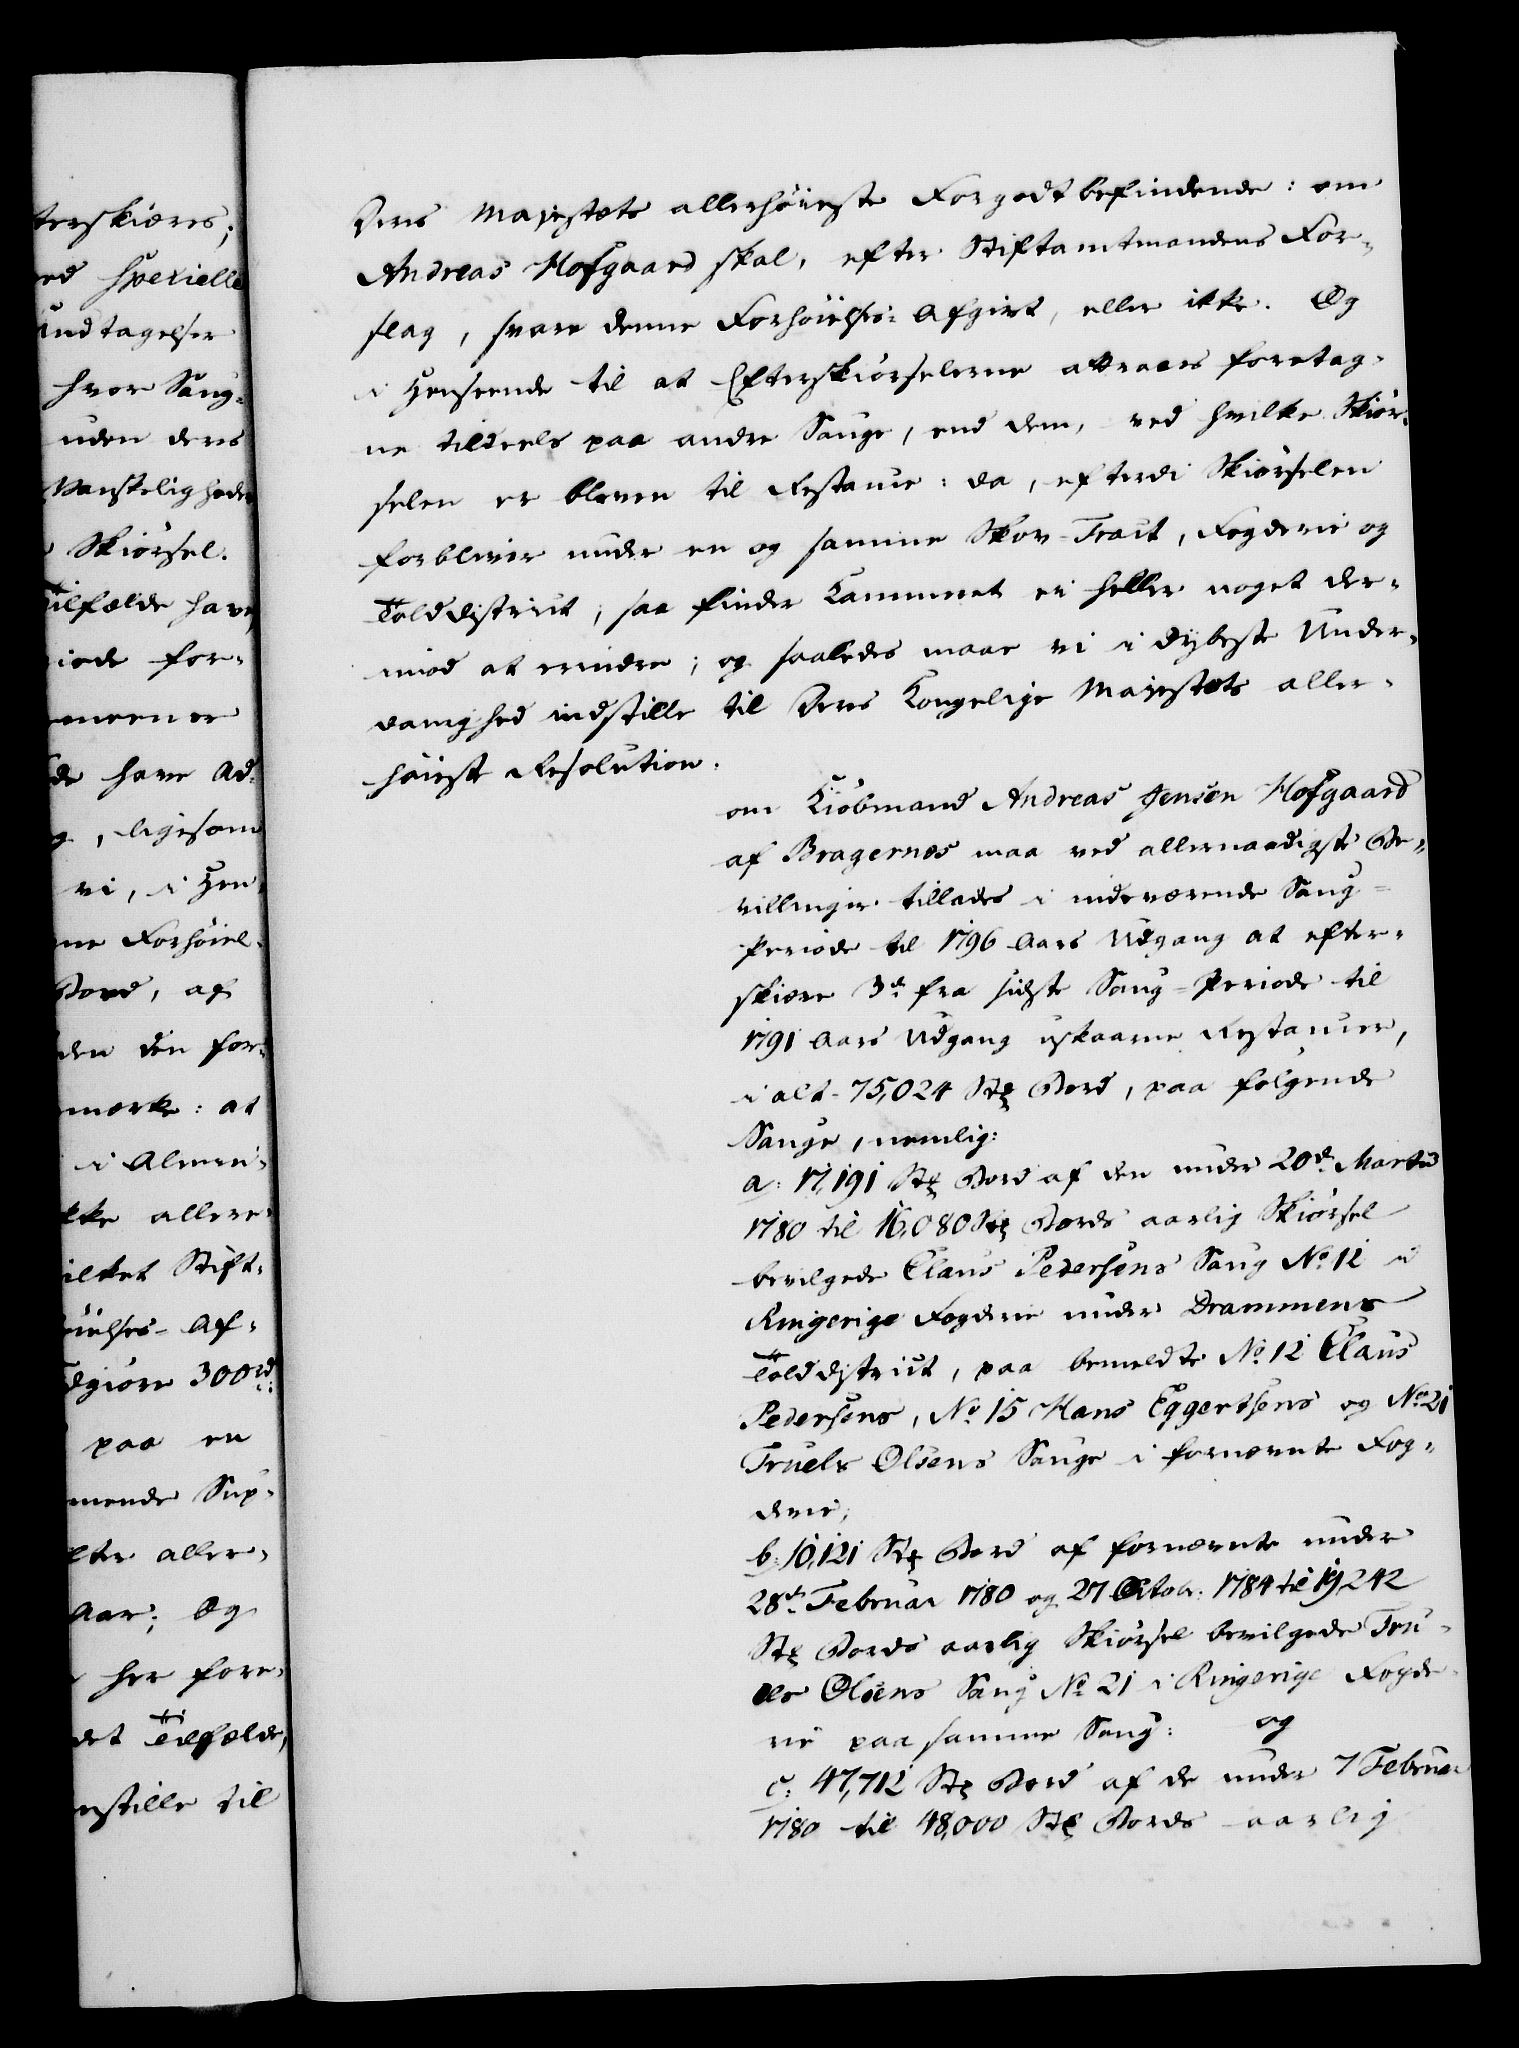 terskiæres;
ed specielle
Undtagelser
hvor Saug-
uden deres
Vanskeligheder
Skiørsel.
Tilfælde have
iode for-
meener
de have Ad-
g, ligesom
vi, i Hen-
ne Forhøiel-
Bord, af
den den for-
mærke: at
i Almin-
kke allere-
ilket Stift-
øielses-Af-
dgiøre 300rd
paa en
mende Sup-
lter aller-
Aar; Og
her fore-
det Tilfælde,
nstille til
Deres Majestæts allerhøieste Forgodtbefindende: om
Andreas Hofgaard skal, efter Stiftamtmandens For-
slag, svare denne Forhøielses-Afgivt, eller ikke. Og
i Henseende til at Efterskiørselerne attraaes foretag-
ne tildeels paa andre Sauge, end dem, ved hvilke Skiør-
selen er bleven til Restance: da, efterdi Skiørselen
forbliver under en og samme Skov-Tract, Fogderie og
Tolddistrict, saa finder Kammeret ei heller noget der-
imod at erindre; og saaledes maae vi i dybeste Under-
danighed indstille til Deres Kongelige Majestæts aller-
høieste Resolution.
om Kiøbmand Andreas Jensen Hofgaard
af Bragernæs maa ved allernaadigste Be-
villinger tillades i indeværende Saug-
Periode til 1796 Aars Udgang at efter-
skiære 3de fra sidste Saug-Periode til
1791 Aars Udgang uskaarne Restancer,
i alt 75,024 Stk Bord, paa følgende
Sauge, nemlig:
a: 17,191 Stk Bord af den under 20de Martii
1780 til 16,080 Stk Bords aarlig Skiørsel
bevilgede Claus Pedersens Saug No 12 i
Ringerige Fogderie under Drammens
Tolddistrict, paa bemeldte No 12 Claus
Pedersens, No 15 Hans Eggertsens og No 21
Truels Olsens Sauge i fornævnte Fog-
derie;
b: 10,121 Stk Bord af fornævnte under
28de Februar 1780 og 27 Octobr: 1784 til 19,242
Stk Bords aarlig Skiørsel bevilgede Tru-
els Olsens Saug No 21 i Ringerige Fogde-
rie paa samme Saug: og
c: 47,712 Stk Bord af de under 7 Februar
1780 til 48,000 Stk Bords aarlig